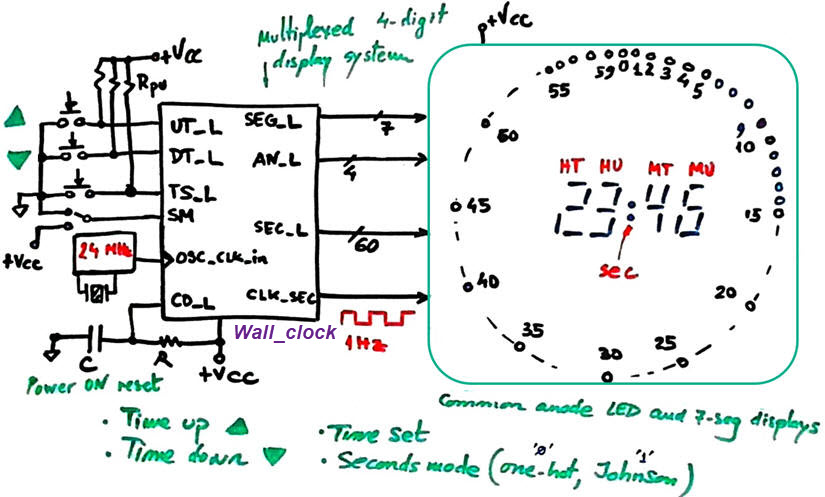 Multiplexed 4-digit
display system
+Vcc
Rpu
UT_L
DT_L
TS_L
SM
OSC_CLK_in
CD_L
SEG_L
AN_L
SEC_L
CLK_SEC
7
4
60
1Hz
+Vcc
24 MHz
C
R
+Vcc
Power ON reset
Wall_clock
+Vcc
55
59
0
1
2
3
4
5
9
10
15
20
25
30
35
40
45
50
HT HU MT MU
23:45
sec
Common anode LED and 7-seg displays
• Time up ▲
• Time down ▼
• Time set
• Seconds mode (one-hot, Johnson)
'0' '1'